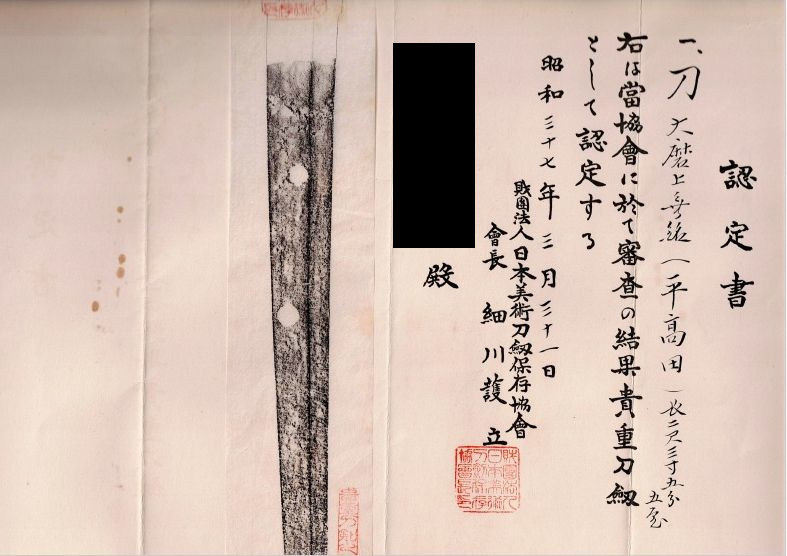 認定書
一、刀 大磨上無銘(平高田)長二尺三寸五分
五厘
右は當協會に於て審査の結果貴重刀劔
として認定する
昭和三十七年三月三十一日
財團法人日本美術刀劔保存協會
會長 細川護立
殿